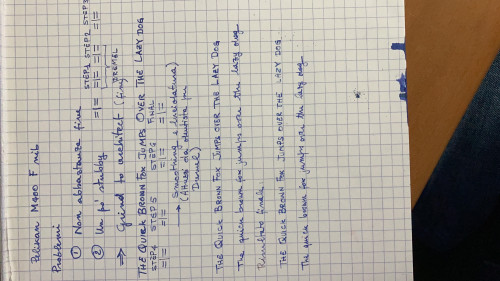 Pelikan M400 F nib
Problemi
① Non abbastanza fine
② Un po' stubby
STEP1 STEP2 STEP3
=|= =|= =|= =|=
⇒ Grind to architect (fine) DREMEL
THE QUICK BROWN FOX JUMPS OVER THE LAZY DOG
STEP4 STEP5 STEP6 FINAL
=|= =|= =|= =|=
→ Smoothing e lucidatura
(Abrasi da dentista per
Dremel)
THE QUICK BROWN FOX JUMPS OVER THE LAZY DOG
The quick brown fox jumps over the lazy dog
finale.
THE QUICK BROWN FOX JUMPS OVER THE LAZY DOG
The quick brown fox jumps over the lazy dog